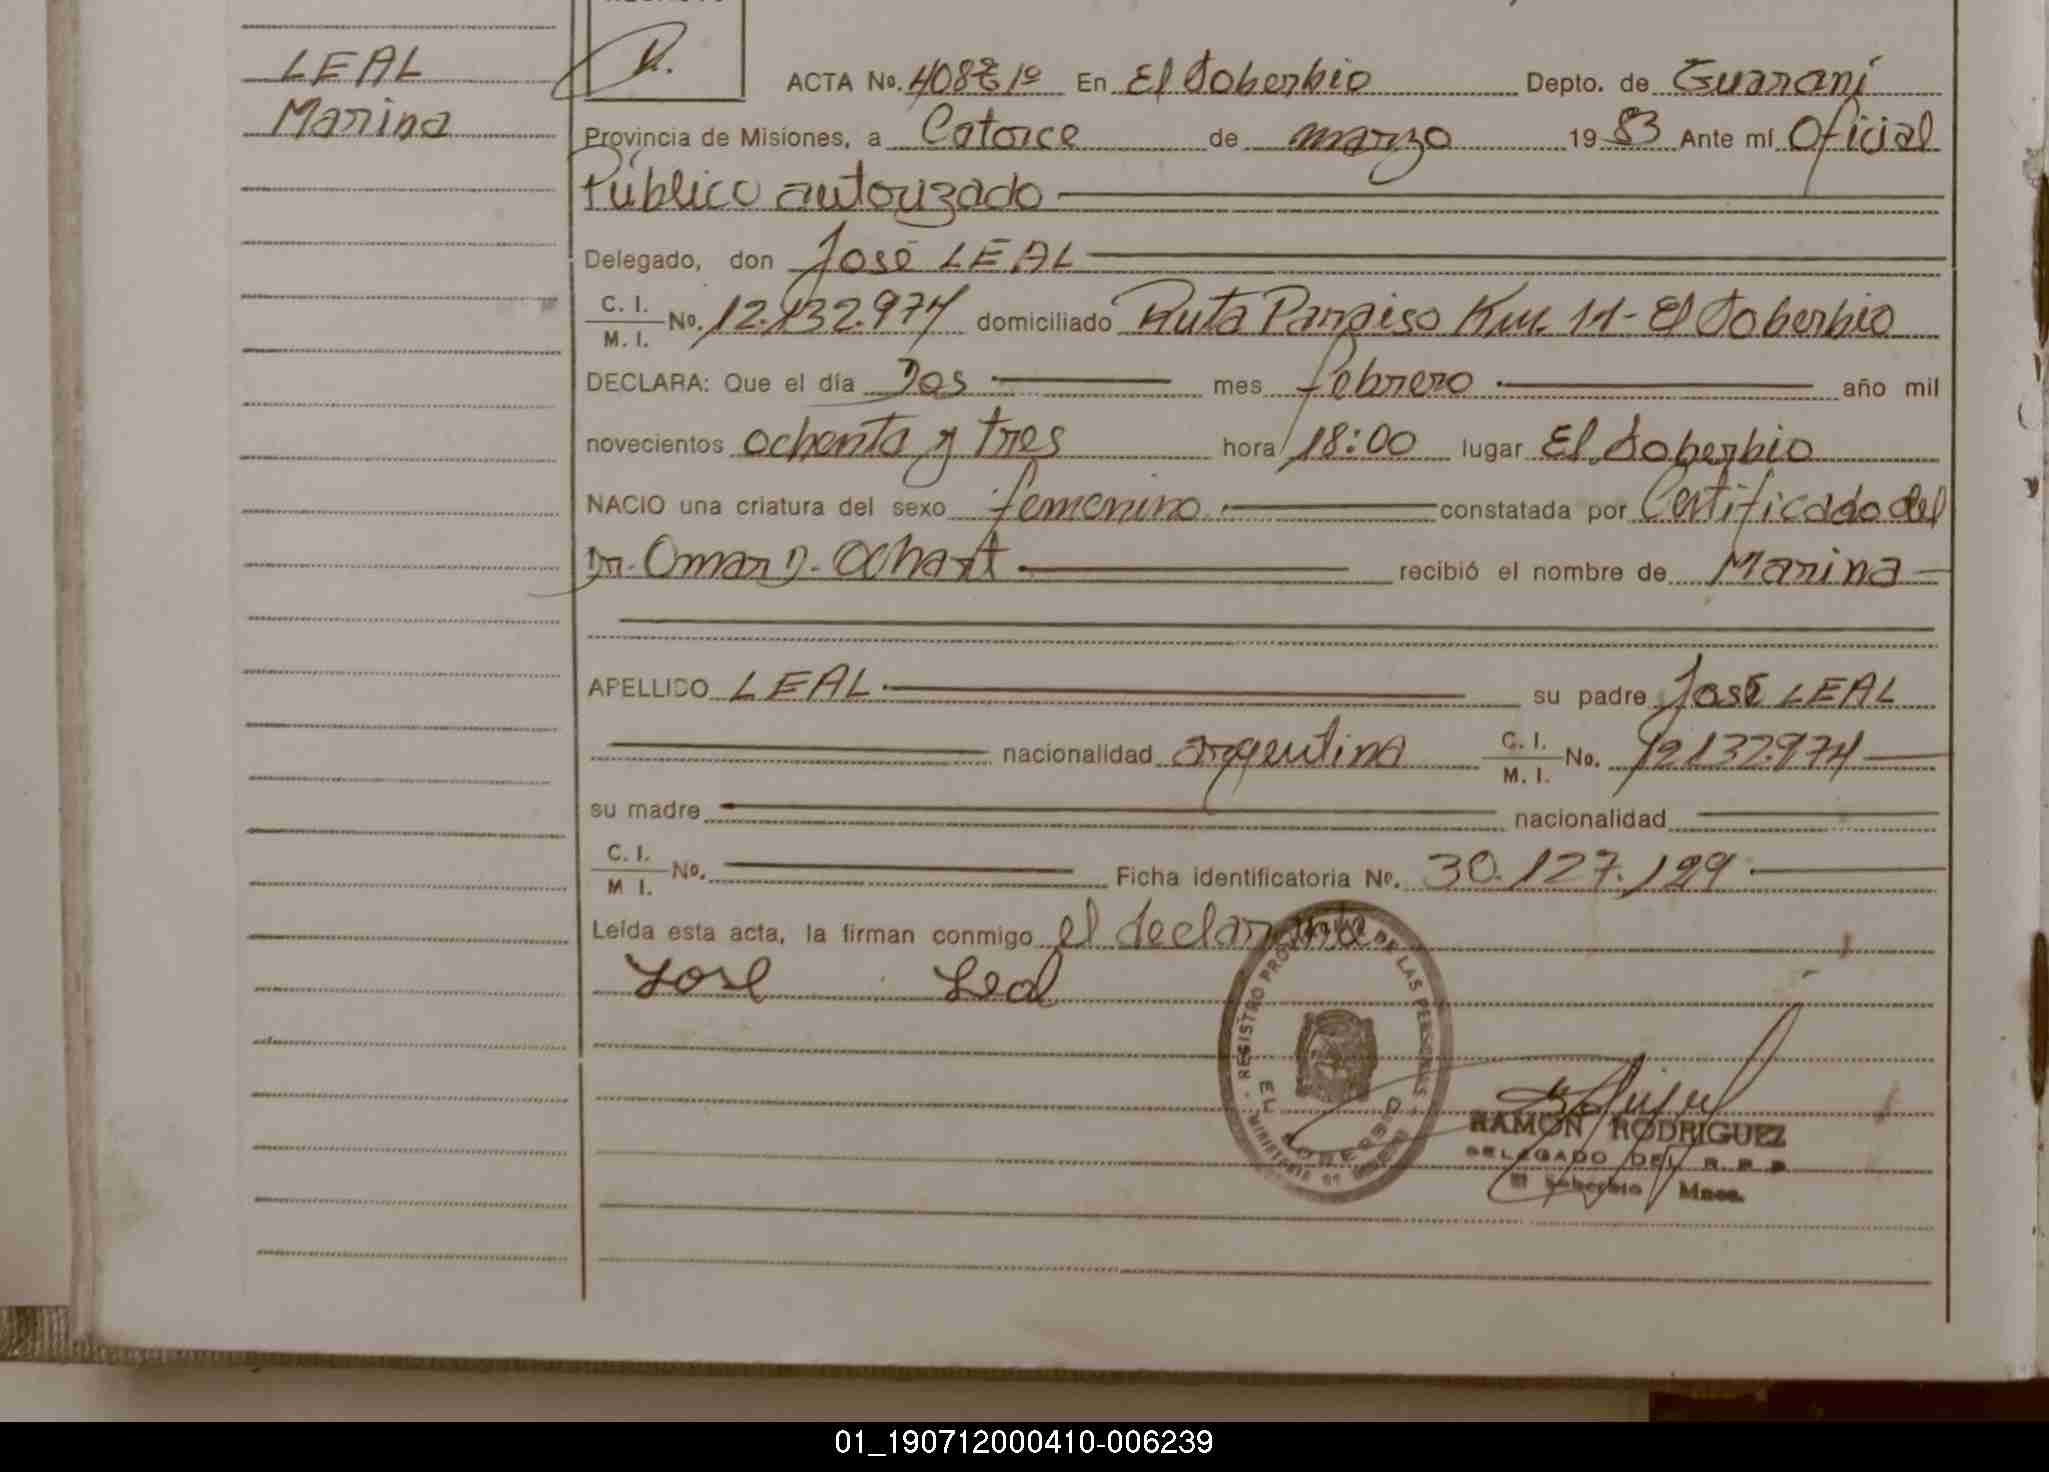 LEAL
Marina
ACTA No. 408 Tº 1º En El Soberbio Depto. de Guaraní
Provincia de Misiones, a Catorce de marzo 1983 Ante mí Oficial
Público autorizado
Delegado, don José LEAL
C. I.
M. I. No. 12.132.974 domiciliado Ruta Paraiso Km. 11 - El Soberbio
DECLARA: Que el día Dos mes febrero año mil
novecientos ochenta y tres hora 18:00 lugar El Soberbio
NACIO una criatura del sexo femenino constatada por Certificado del
Dr. Omar D. Ochart recibió el nombre de Marina
APELLIDO LEAL su padre José LEAL
nacionalidad argentina C. I.
M. I. No. 12.132.974
su madre nacionalidad
C. I.
M I. No. Ficha identificatoria No. 30.127.129
Leída esta acta, la firman conmigo el declarante
José Leal
REGISTRO PROVINCIAL DE LAS PERSONAS
EL SOBERBIO
MINISTERIO DE GOBIERNO
RAMON RODRIGUEZ
DELEGADO DEL R. P. P.
El Soberbio Mnes.
01_190712000410-006239